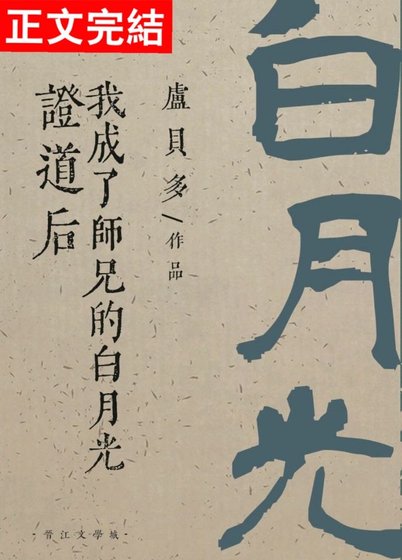 正文完結
白月光
盧貝多/作品
我成了師兄的白月光
證道后
-晉江文學城-